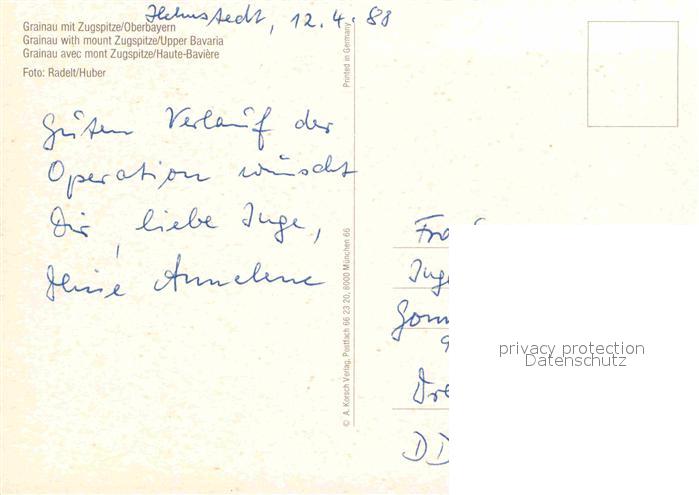 Helmstedt, 12.4.88
Grainau mit Zugspitze/Oberbayern
Grainau with mount Zugspitze/Upper Bavaria
Grainau avec mont Zugspitze/Haute-Bavière
Foto: Radelt/Huber
Guten Verlauf der
Operation wünscht
Dir, liebe Inge,
Deine Annelene
Printed in Germany
© A. Korsch Verlag, Postfach 66 23 20, 8000 München 66
Inge
DD
privacy protection
Datenschutz